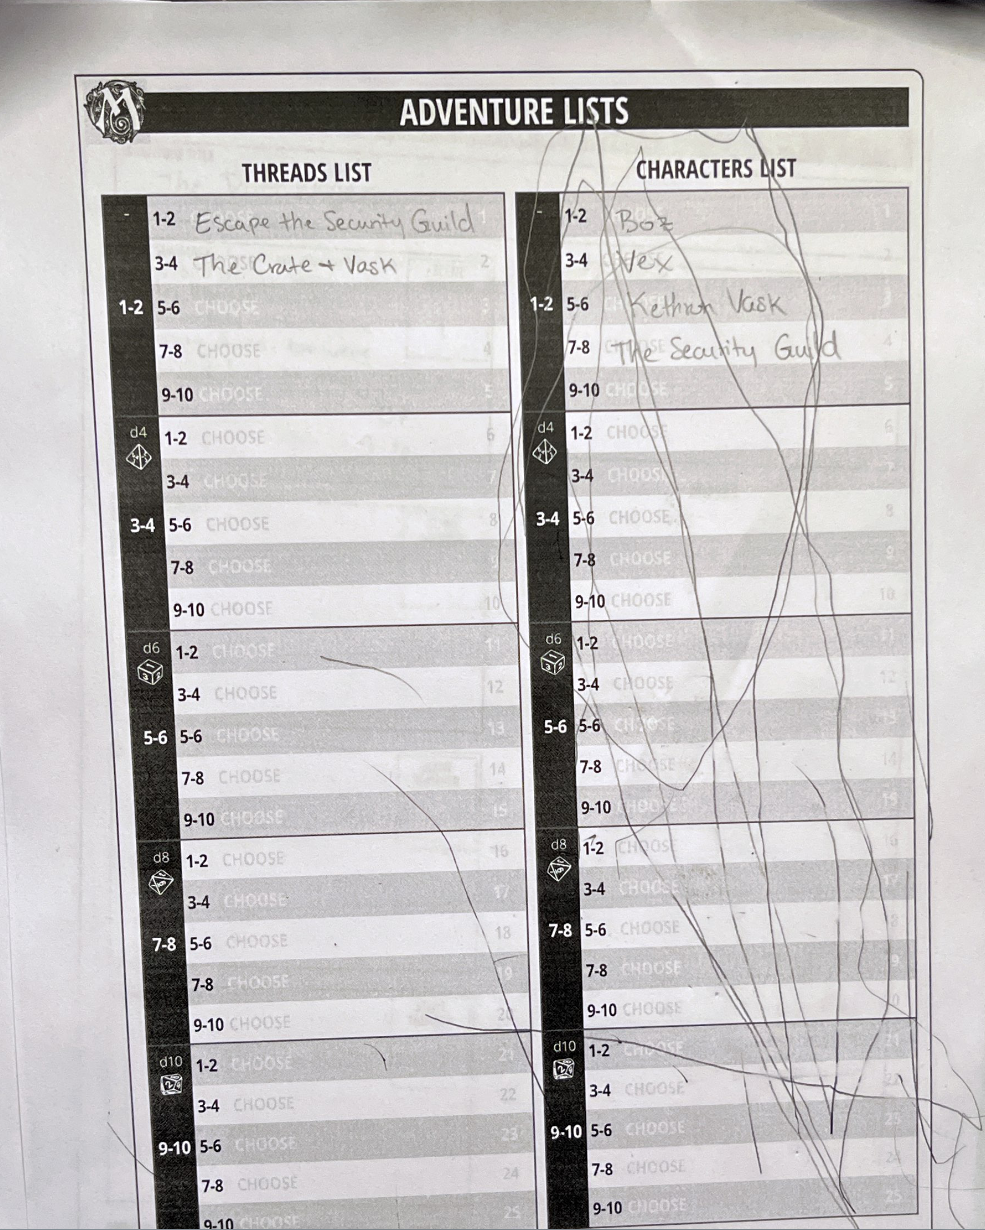 M
ADVENTURE LISTS
THREADS LIST
- 1-2 Escape the Security Guild 1
3-4 The Crate + Vask 2
1-2 5-6 CHOOSE 3
7-8 CHOOSE 4
9-10 CHOOSE 5
d4 1-2 CHOOSE 6
3-4 CHOOSE 7
3-4 5-6 CHOOSE 8
7-8 CHOOSE 9
9-10 CHOOSE 10
d6 1-2 CHOOSE 11
3-4 CHOOSE 12
5-6 5-6 CHOOSE 13
7-8 CHOOSE 14
9-10 CHOOSE 15
d8 1-2 CHOOSE 16
3-4 CHOOSE 17
7-8 5-6 CHOOSE 18
7-8 CHOOSE 19
9-10 CHOOSE 20
d10 1-2 CHOOSE 21
3-4 CHOOSE 22
9-10 5-6 CHOOSE 23
7-8 CHOOSE 24
9-10 CHOOSE 25
CHARACTERS LIST
- 1-2 Boz 1
3-4 Vex 2
1-2 5-6 Kethran Vask 3
7-8 The Security Guild 4
9-10 CHOOSE 5
d4 1-2 CHOOSE 6
3-4 CHOOSE 7
3-4 5-6 CHOOSE 8
7-8 CHOOSE 9
9-10 CHOOSE 10
d6 1-2 CHOOSE 11
3-4 CHOOSE 12
5-6 5-6 CHOOSE 13
7-8 CHOOSE 14
9-10 CHOOSE 15
d8 1-2 CHOOSE 16
3-4 CHOOSE 17
7-8 5-6 CHOOSE 18
7-8 CHOOSE 19
9-10 CHOOSE 20
d10 1-2 CHOOSE 21
3-4 CHOOSE 22
9-10 5-6 CHOOSE 23
7-8 CHOOSE 24
9-10 CHOOSE 25